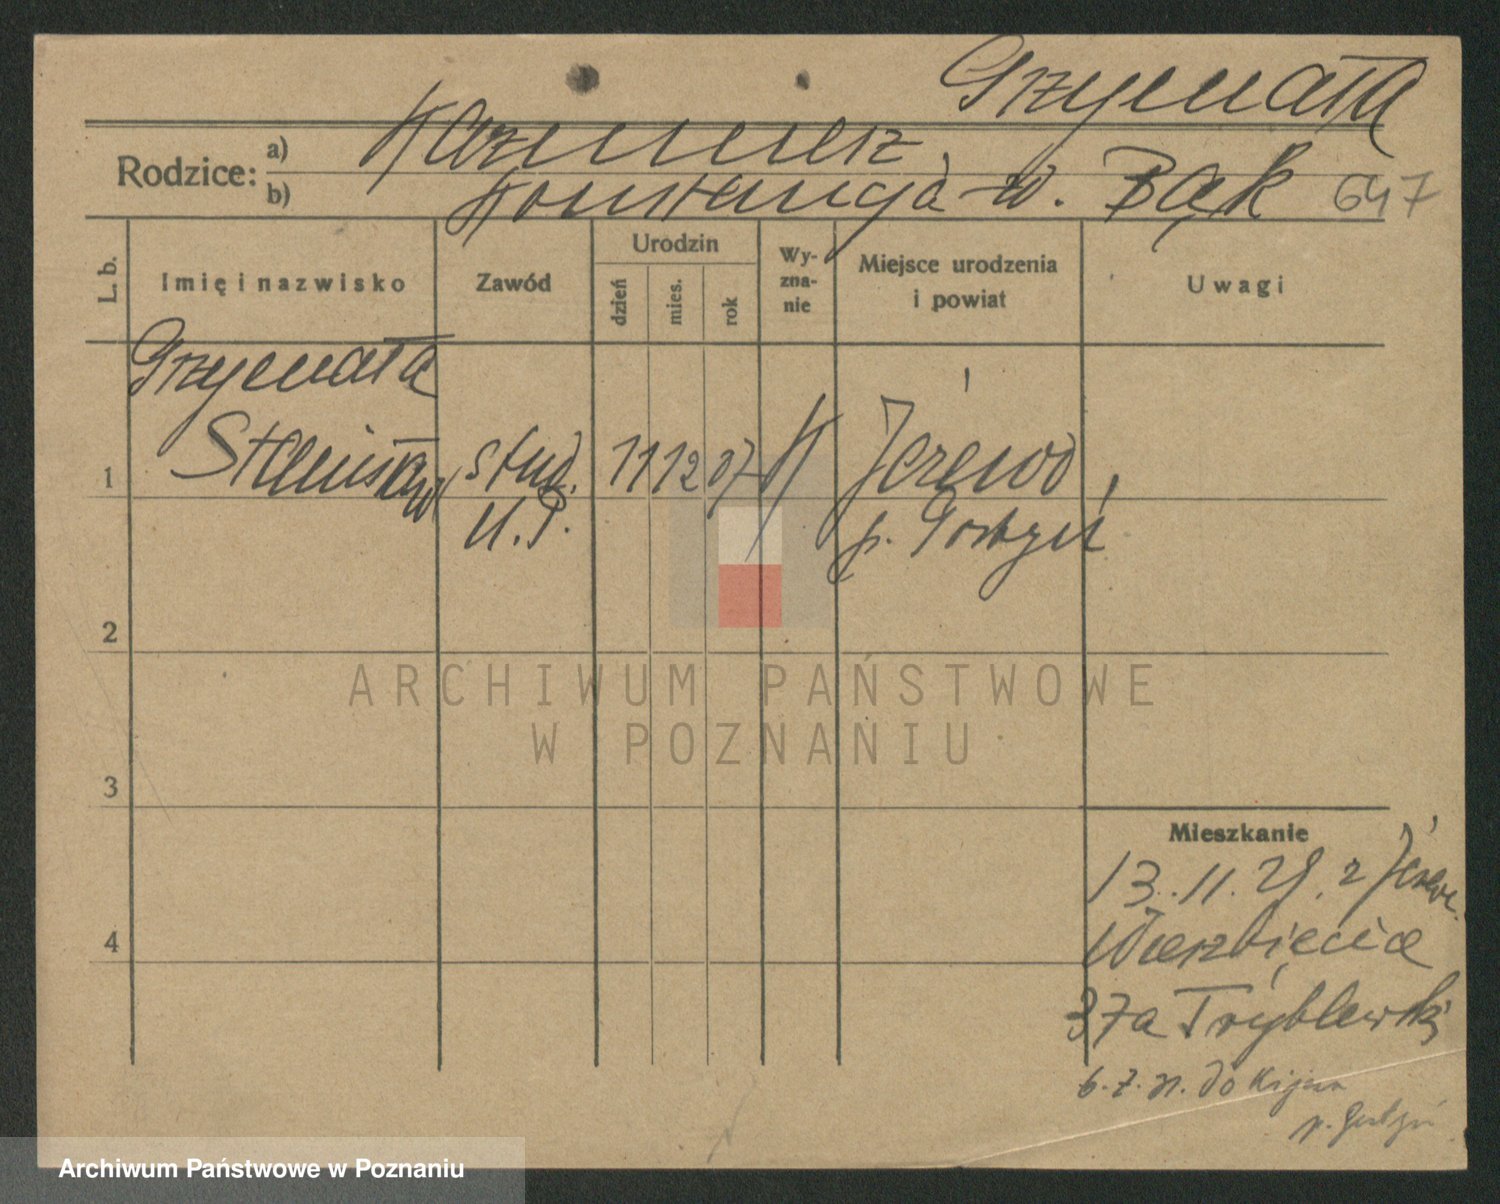 Grzymała
Rodzice: a) Kazimierz
b) Konstancja w. Bąk 647
L. b. Imię i nazwisko Zawód Urodzin dzień mies. rok Wyzna-nie Miejsce urodzenia i powiat Uwagi
Grzymała
1 Stanisław stud. 11 12 07 K Jeżewo
U. P. p. Gostyń
2
ARCHIWUM PAŃSTWOWE
W POZNANIU
3
Mieszkanie
13. 11. 29. z Jeżewa
4 Wierzbięcice
37a Tryblewski
6. 7. 31. do
p. Gostyń
Archiwum Państwowe w Poznaniu